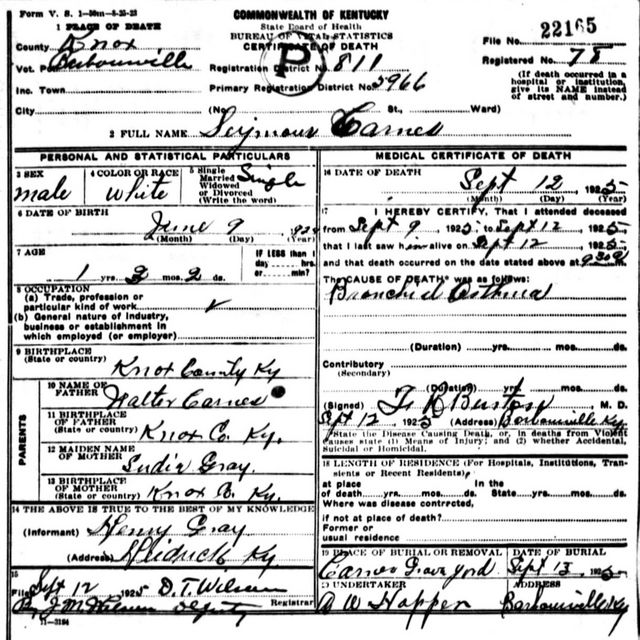 Form V. S. 1-50m-8-25-23
COMMONWEALTH OF KENTUCKY
State Board of Health
BUREAU OF VITAL STATISTICS
CERTIFICATE OF DEATH
P
1 PLACE OF DEATH
County Knox
Vot. Barbourville
Inc. Town
City
Registration District No. 811
Primary Registration District No. 5966
(No. St., Ward)
File No. 22165
Registered No. 78
(If death occurred in a
hospital or institution,
give its NAME instead
of street and number.)
2 FULL NAME Seymour Carnes
PERSONAL AND STATISTICAL PARTICULARS
3 SEX
male
4 COLOR OR RACE
White
5 Single
Married
Widowed
or Divorced
(Write the word)
Single
6 DATE OF BIRTH
June 9 924
(Month) (Day) (Year)
7 AGE
1 yrs. 3 mos. 2 ds.
IF LESS than 1
day ... hrs.
or ... min?
8 OCCUPATION
(a) Trade, profession or
particular kind of work
(b) General nature of industry,
business or establishment in
which employed (or employer)
9 BIRTHPLACE
(State or country)
Knox County Ky
PARENTS
10 NAME OF
FATHER
Walter Carnes
11 BIRTHPLACE
OF FATHER
(State or country)
Knox Co. Ky.
12 MAIDEN NAME
OF MOTHER
Gray.
13 BIRTHPLACE
OF MOTHER
(State or country)
Knox Co. Ky.
14 THE ABOVE IS TRUE TO THE BEST OF MY KNOWLEDGE
(Informant) Henry Gray
(Address) Heidrick Ky
15
Filed Sept 12 1925 D. T. Wilson
Deputy Registrar
11-3184
MEDICAL CERTIFICATE OF DEATH
16 DATE OF DEATH
Sept 12, 1925
(Month) (Day) (Year)
17 I HEREBY CERTIFY, That I attended deceased
from Sept 9 1925 to Sept 12 1925
that I last saw him alive on Sept 12 1925
and that death occurred on the date stated above at 9 30
The CAUSE OF DEATH* was as follows:
Bronchial Asthma
(Duration) yrs. mos. ds.
Contributory
(Secondary)
(Duration) yrs. mos. ds.
(Signed) M. D.
Sept 12 1925 (Address) Barbourville Ky
State the Disease Causing Death, or, in deaths from Violent
Causes state (1) Means of Injury; and (2) whether Accidental,
Suicidal or Homicidal.
18 LENGTH OF RESIDENCE (For Hospitals, Institutions, Tran-
sients or Recent Residents)
at place In the
of death yrs. mos. ds. State yrs. mos. ds.
Where was disease contracted,
if not at place of death?
Former or
usual residence
19 PLACE OF BURIAL OR REMOVAL DATE OF BURIAL
Carnes Grave yord Sept 13 1925
20 UNDERTAKER ADDRESS
A W Hopper Barbourville Ky